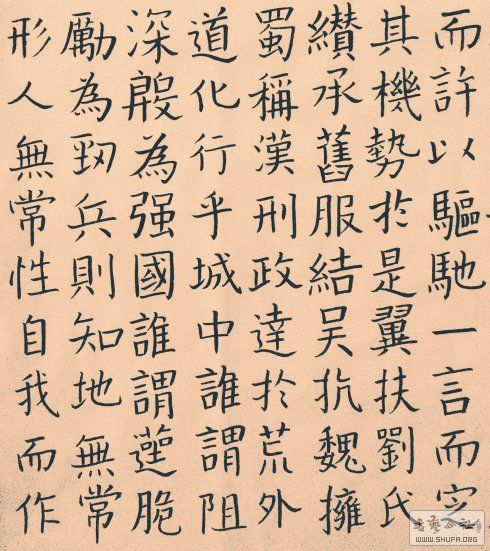 而許以驅馳一言而定
其機勢扵是翼扶劉氏
纘承舊服結吳抗魏擁
蜀稱漢刑政達扵荒外
道化行乎城中誰謂阻
深殷為强國誰謂脆
勵為兵則知地無常
形人無常性自我而作
WWW.SHUFA.ORG